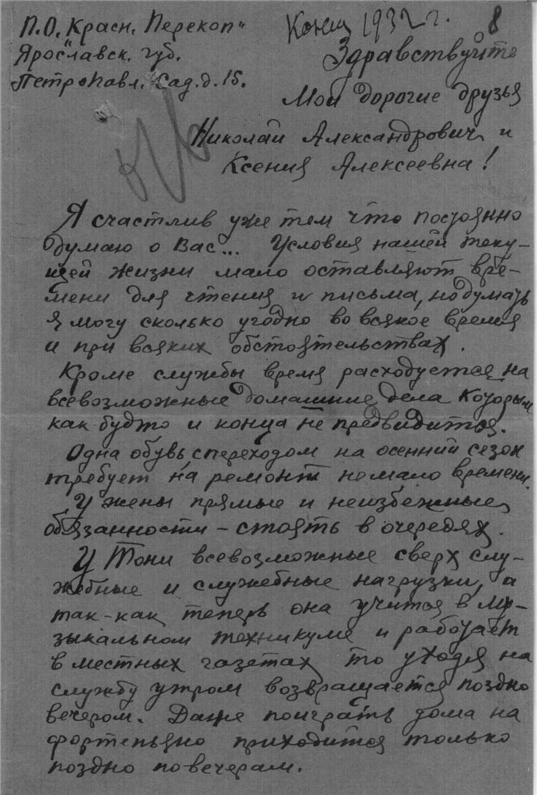 П.О. Красн. Перекоп"
Ярославск. губ.
Петропавл. Сад. д. 15.
Конец 1932 г. 8
Здравствуйте
Мои дорогие друзья
Николай Александрович и
Ксения Алексеевна!
Я счастлив уже тем что постоянно
думаю о Вас... Условия нашей теку-
щей жизни мало оставляют вре-
мени для чтения и письма, но думать
я могу сколько угодно во всякое время
и при всяких обстоятельствах.
Кроме службы время расходуется на
всевозможные домашние дела которым
как будто и конца не предвидится.
Одна обувь с переходом на осенний сезон
требует на ремонт немало времени.
У жены прямые и неизбежные
обязанности – стоять в очередях.
У Тони всевозможные сверх слу-
жебные и служебные нагрузки, а
так-как теперь она учится в Му-
зыкальном техникуме и работает
в местных газетах то уходя на
службу утром возвращается поздно
вечером. Даже поиграть дома на
фортепьяно приходится только
поздно по вечерам.